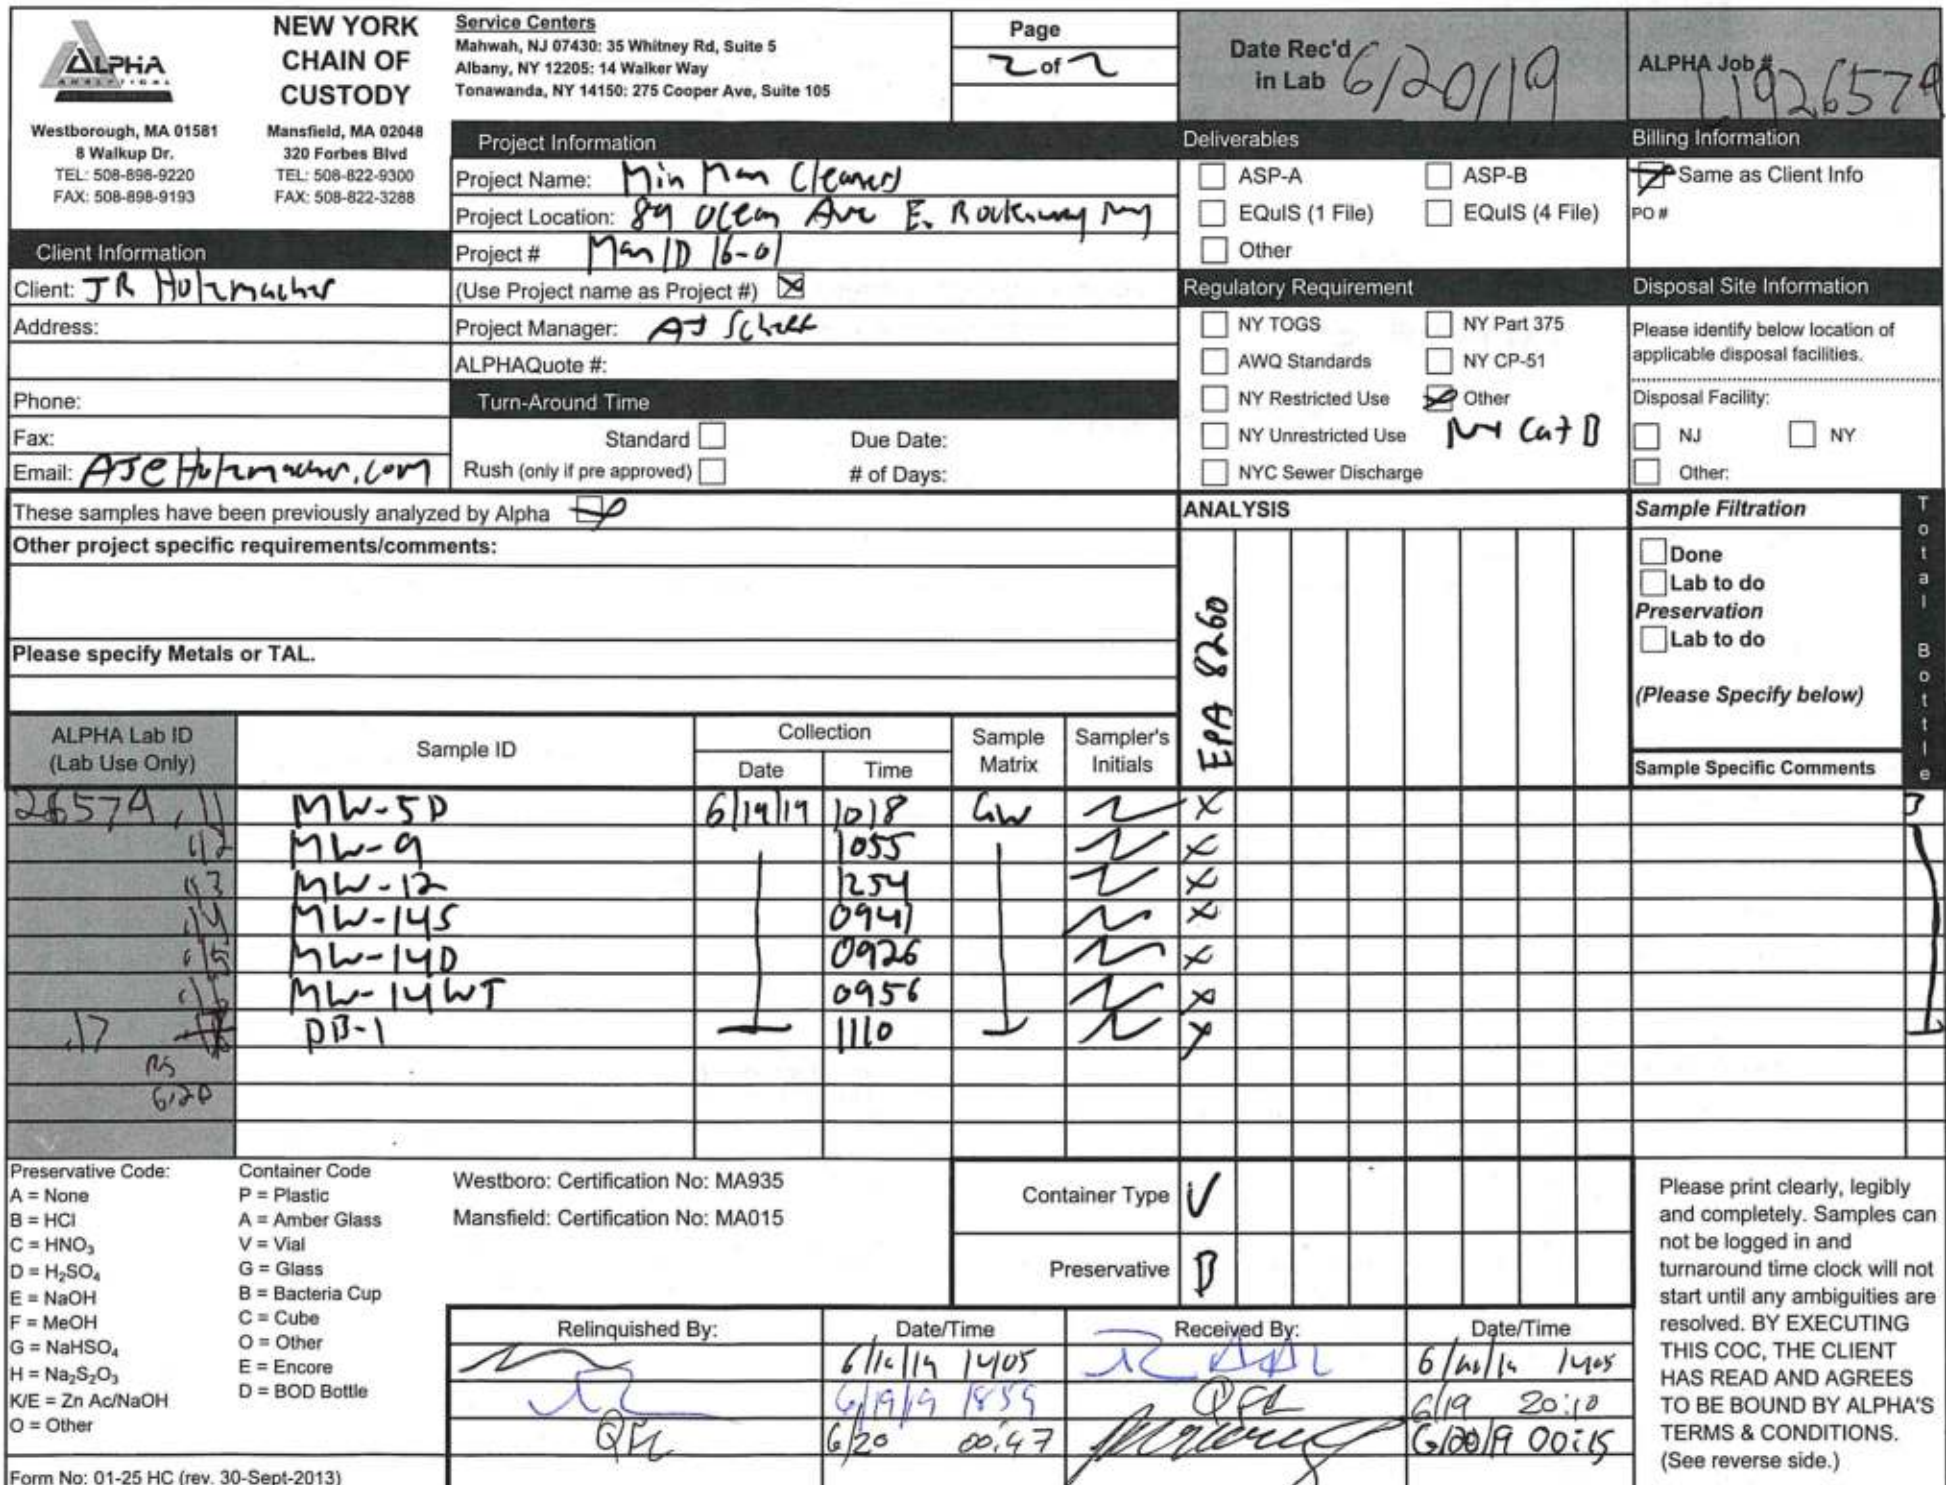 ALPHA
ANALYTICAL
NEW YORK
CHAIN OF
CUSTODY
Westborough, MA 01581
8 Walkup Dr.
TEL: 508-898-9220
FAX: 508-898-9193
Mansfield, MA 02048
320 Forbes Blvd
TEL: 508-822-9300
FAX: 508-822-3288
Service Centers
Mahwah, NJ 07430: 35 Whitney Rd, Suite 5
Albany, NY 12205: 14 Walker Way
Tonawanda, NY 14150: 275 Cooper Ave, Suite 105
Page
2 of 2
Date Rec'd
in Lab 6/20/19
ALPHA Job #
L1926579
Client Information
Client: JR Holzmacher
Address:
Phone:
Fax:
Email: AJ@Holzmacher.com
Project Information
Project Name: Min Man Cleaners
Project Location: 89 Ocean Ave E. Rockaway NY
Project # Man ID 16-01
(Use Project name as Project #)
Project Manager: AJ
ALPHAQuote #:
Turn-Around Time
Standard Due Date:
Rush (only if pre approved) # of Days:
Deliverables
ASP-A ASP-B
EQuIS (1 File) EQuIS (4 File)
Other
Regulatory Requirement
NY TOGS NY Part 375
AWQ Standards NY CP-51
NY Restricted Use Other
NY Unrestricted Use NY Cat B
NYC Sewer Discharge
Billing Information
Same as Client Info
PO #
Disposal Site Information
Please identify below location of
applicable disposal facilities.
Disposal Facility:
NJ NY
Other:
These samples have been previously analyzed by Alpha
Other project specific requirements/comments:
Please specify Metals or TAL.
ANALYSIS
EPA 8260
Sample Filtration
Done
Lab to do
Preservation
Lab to do
(Please Specify below)
Sample Specific Comments
Total Bottle
ALPHA Lab ID
(Lab Use Only)
Sample ID
Collection
Date Time
Sample
Matrix
Sampler's
Initials
26579.11 MW-5D 6/19/19 1018 GW X 3
.12 MW-9 1055 X
.13 MW-12 1254 X
.14 MW-14S 0941 X
.15 MW-14D 0926 X
.16 MW-14WT 0956 X
.17 DB-1 1110 X
RS
6/20
Preservative Code:
A = None
B = HCl
C = HNO₃
D = H₂SO₄
E = NaOH
F = MeOH
G = NaHSO₄
H = Na₂S₂O₃
K/E = Zn Ac/NaOH
O = Other
Container Code
P = Plastic
A = Amber Glass
V = Vial
G = Glass
B = Bacteria Cup
C = Cube
O = Other
E = Encore
D = BOD Bottle
Westboro: Certification No: MA935
Mansfield: Certification No: MA015
Container Type V
Preservative B
Relinquished By: Date/Time Received By: Date/Time
6/19/19 1405 1405
6/19/19 1855 QFL 6/19 20:10
QFL 6/20 00:47 6/20/19 00:15
Please print clearly, legibly
and completely. Samples can
not be logged in and
turnaround time clock will not
start until any ambiguities are
resolved. BY EXECUTING
THIS COC, THE CLIENT
HAS READ AND AGREES
TO BE BOUND BY ALPHA'S
TERMS & CONDITIONS.
(See reverse side.)
Form No: 01-25 HC (rev. 30-Sept-2013)